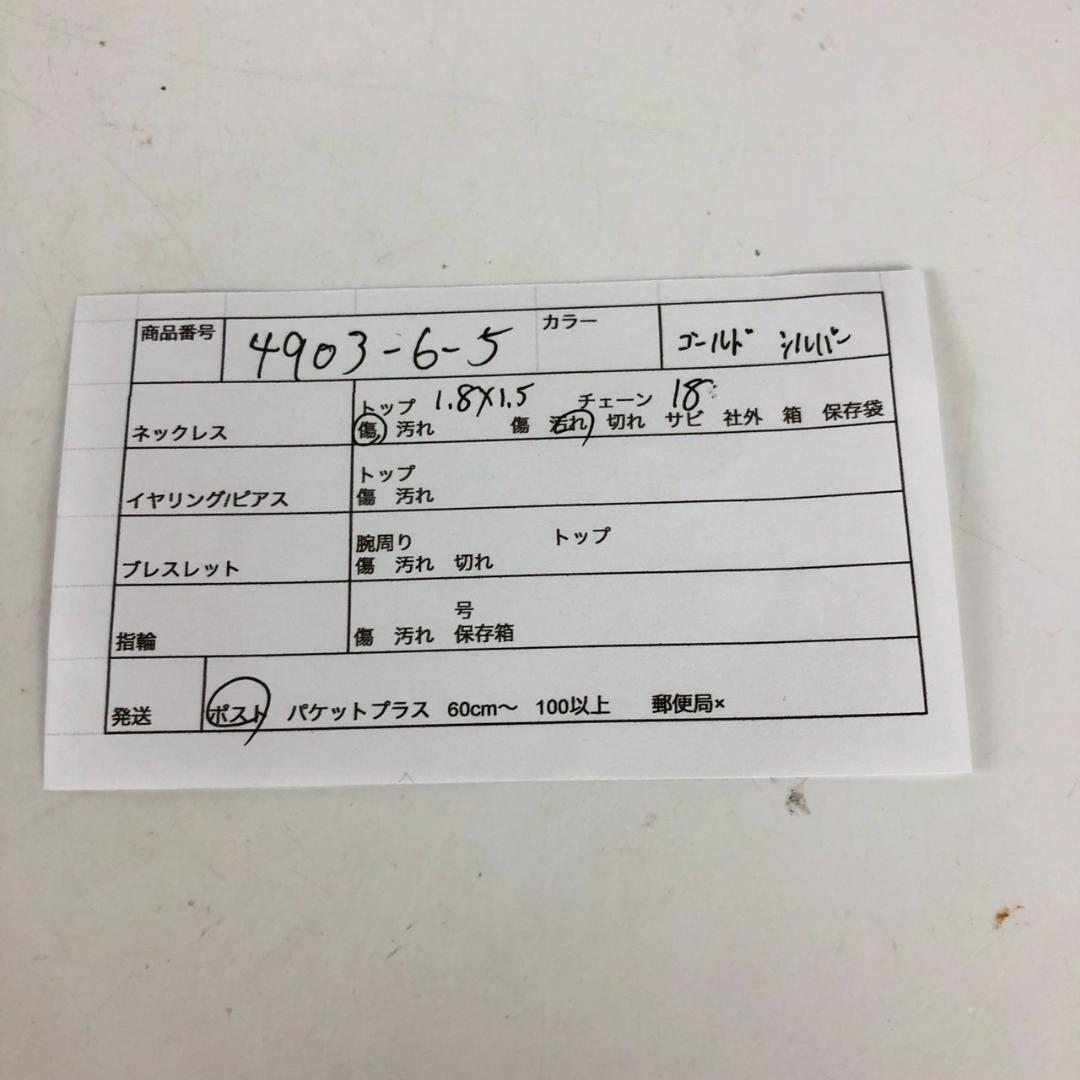 商品番号 4903-6-5 カラー ゴールド シルバー
トップ 1.8×1.5 チェーン 18
ネックレス 傷 汚れ 傷 汚れ 切れ サビ 社外 箱 保存袋
トップ
イヤリング/ピアス 傷 汚れ
腕周り トップ
ブレスレット 傷 汚れ 切れ
号
指輪 傷 汚れ 保存箱
発送 ポスト パケットプラス 60cm〜 100以上 郵便局×